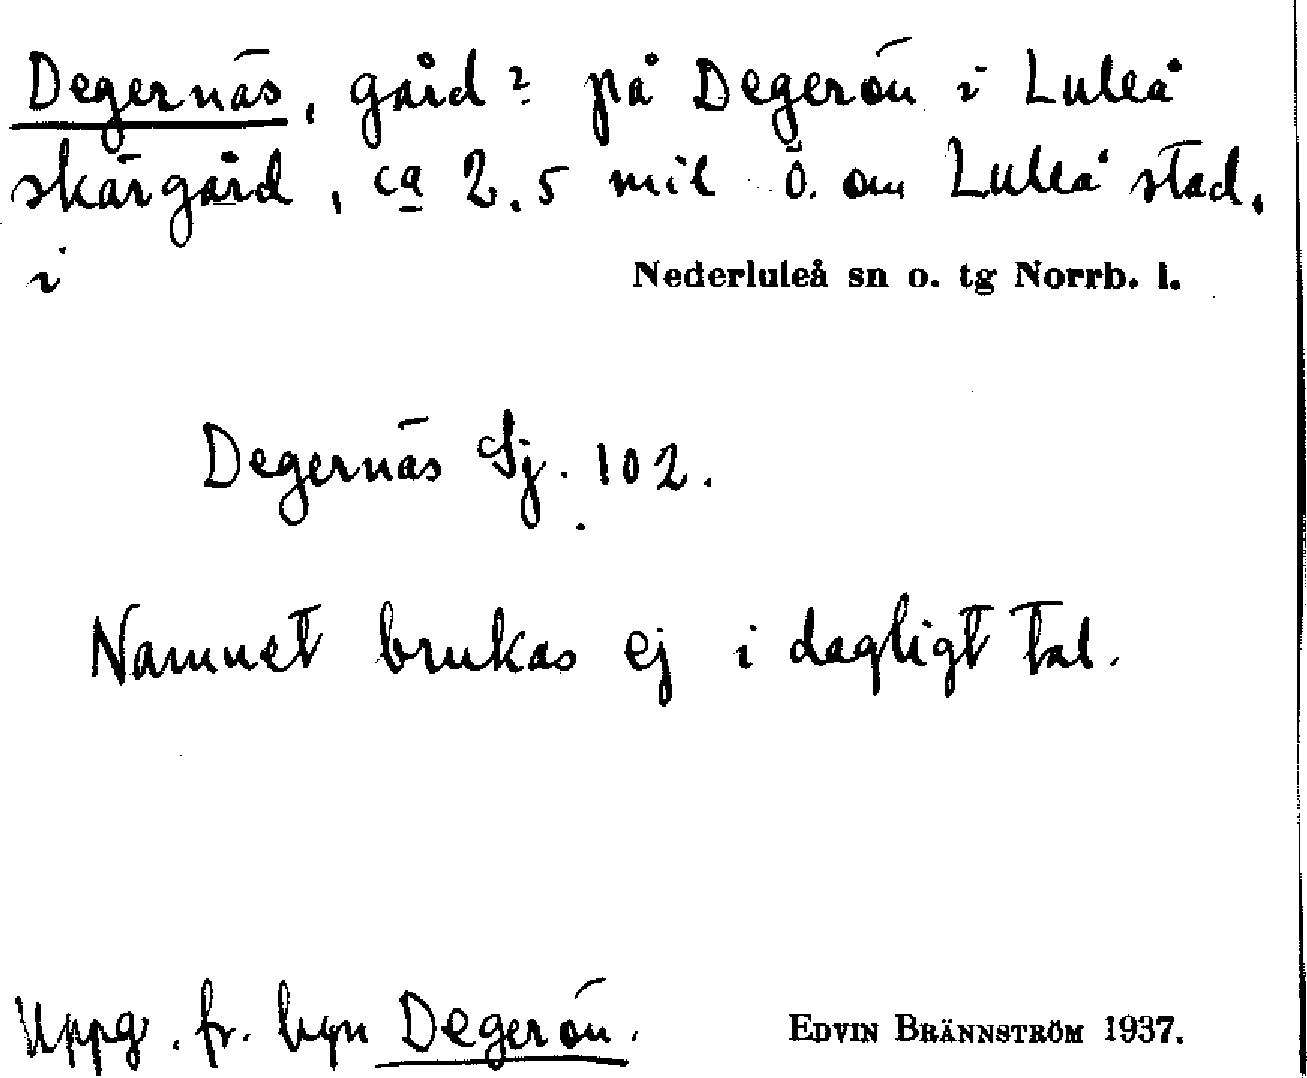 Degernäs, gård? på Degerön i Luleå
skärgård, ca 2,5 mil ö. om Luleå stad,
i Nederluleå sn o. tg Norrb. l.
Degernäs Sj. 102.
Namnet brukas ej i dagligt tal.
Uppg. fr. byn Degerön. EDVIN BRÄNNSTRÖM 1937.